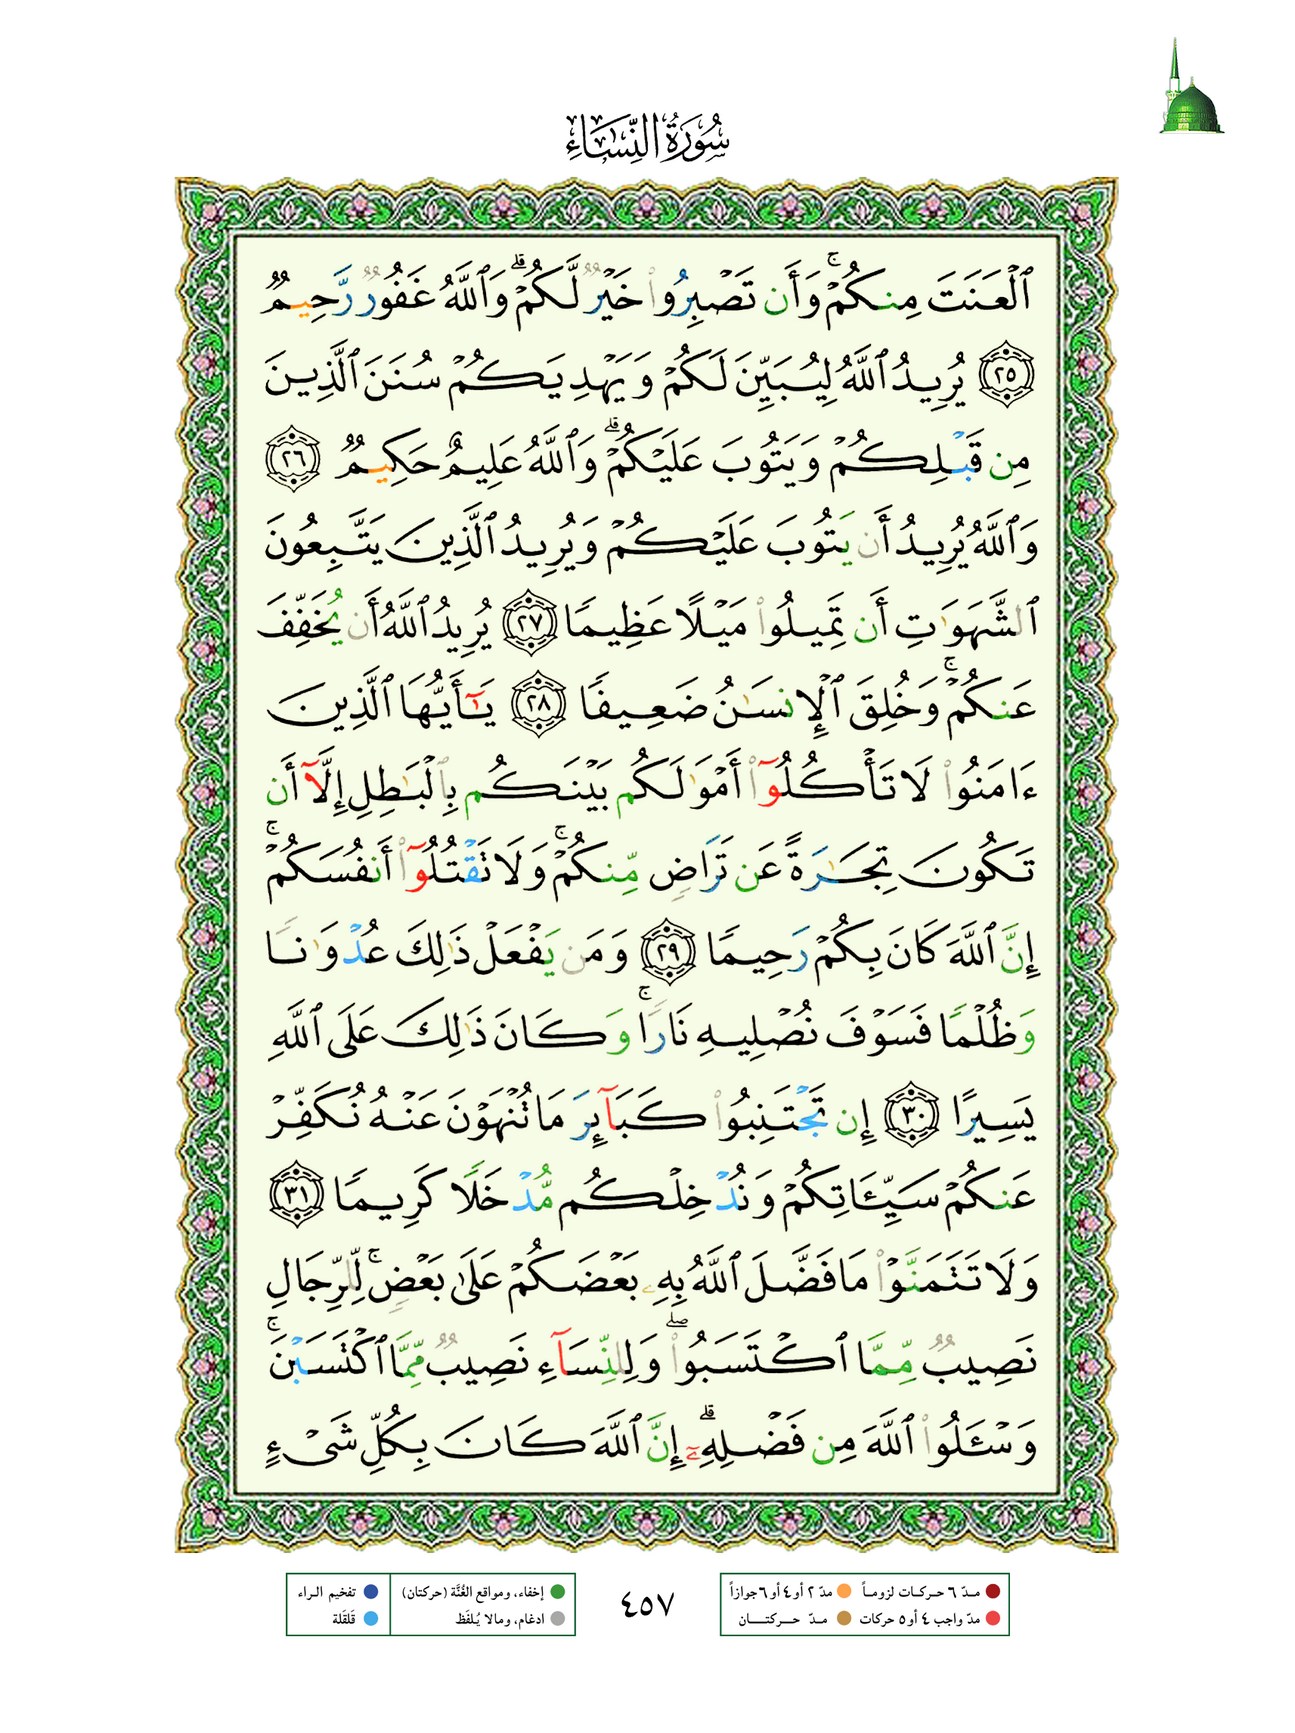 سُورَةُ النِّسَاءِ
ٱلۡعَنَتَ مِنكُمۡۚ وَأَن تَصۡبِرُواْ خَيۡرٞ لَّكُمۡۗ وَٱللَّهُ غَفُورٞ رَّحِيمٞ
٢٥ يُرِيدُ ٱللَّهُ لِيُبَيِّنَ لَكُمۡ وَيَهۡدِيَكُمۡ سُنَنَ ٱلَّذِينَ
مِن قَبۡلِكُمۡ وَيَتُوبَ عَلَيۡكُمۡۗ وَٱللَّهُ عَلِيمٌ حَكِيمٞ ٢٦
وَٱللَّهُ يُرِيدُ أَن يَتُوبَ عَلَيۡكُمۡ وَيُرِيدُ ٱلَّذِينَ يَتَّبِعُونَ
ٱلشَّهَوَٰتِ أَن تَمِيلُواْ مَيۡلًا عَظِيمٗا ٢٧ يُرِيدُ ٱللَّهُ أَن يُخَفِّفَ
عَنكُمۡۚ وَخُلِقَ ٱلۡإِنسَٰنُ ضَعِيفٗا ٢٨ يَٰٓأَيُّهَا ٱلَّذِينَ
ءَامَنُواْ لَا تَأۡكُلُوٓاْ أَمۡوَٰلَكُم بَيۡنَكُم بِٱلۡبَٰطِلِ إِلَّآ أَن
تَكُونَ تِجَٰرَةً عَن تَرَاضٖ مِّنكُمۡۚ وَلَا تَقۡتُلُوٓاْ أَنفُسَكُمۡۚ
إِنَّ ٱللَّهَ كَانَ بِكُمۡ رَحِيمٗا ٢٩ وَمَن يَفۡعَلۡ ذَٰلِكَ عُدۡوَٰنٗا
وَظُلۡمٗا فَسَوۡفَ نُصۡلِيهِ نَارٗاۚ وَكَانَ ذَٰلِكَ عَلَى ٱللَّهِ
يَسِيرًا ٣٠ إِن تَجۡتَنِبُواْ كَبَآئِرَ مَا تُنۡهَوۡنَ عَنۡهُ نُكَفِّرۡ
عَنكُمۡ سَيِّـَٔاتِكُمۡ وَنُدۡخِلۡكُم مُّدۡخَلٗا كَرِيمٗا ٣١
وَلَا تَتَمَنَّوۡاْ مَا فَضَّلَ ٱللَّهُ بِهِۦ بَعۡضَكُمۡ عَلَىٰ بَعۡضٖۚ لِّلرِّجَالِ
نَصِيبٞ مِّمَّا ٱكۡتَسَبُواْۖ وَلِلنِّسَآءِ نَصِيبٞ مِّمَّا ٱكۡتَسَبۡنَۚ
وَسۡـَٔلُواْ ٱللَّهَ مِن فَضۡلِهِۦٓۗ إِنَّ ٱللَّهَ كَانَ بِكُلِّ شَيۡءٍ
مدّ ٦ حركات لزوماً مدّ ٢ أو ٤ أو ٦ جوازاً
مدّ واجب ٤ أو ٥ حركات مدّ حركتان
٤٥٧
إخفاء، ومواقع الغُنَّة (حركتان) تفخيم الراء
ادغام، ومالا يُلفَظ قَلقَلة